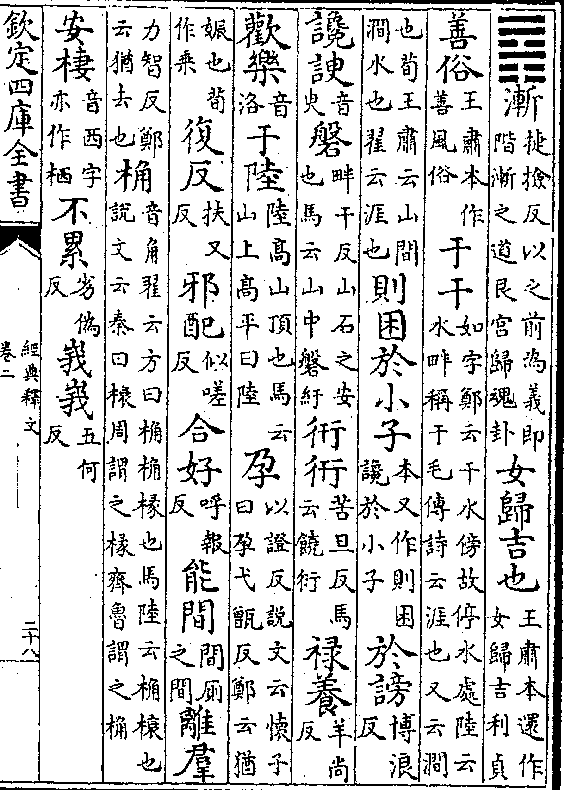 ䷴漸捷檢反以之前為義即階漸之道艮宮歸魂卦女歸吉也王肅本還作女歸吉利貞
善俗王肅本作善風俗于干如字鄭云干水傍故停水處陸云水畔稱干毛傳詩云涯也又云澗
也荀王肅云山間澗水也翟云涯也則困於小子本又作則困讒於小子於謗博浪反
讒諛音臾磐畔干反山石之安也馬云山中磐紆衎衎苦旦反馬云饒衍禄養羊尚反
歡樂音洛于陸陸高山頂也馬云山上高平曰陸孕以證反說文云懷子曰孕弋甑反鄭云猶
娠也荀作乘復反扶又反邪配似嗟反合好呼報反能間間厠之間離羣
力智反鄭云猶去也桷音角翟云方曰桷桷椽也馬陸云桷榱也說文云秦曰榱周謂之椽齊魯謂之桷
安棲音西字亦作栖不累劣偽反峩峩五何反
欽定四庫全書
經典釋文
卷二
二十八